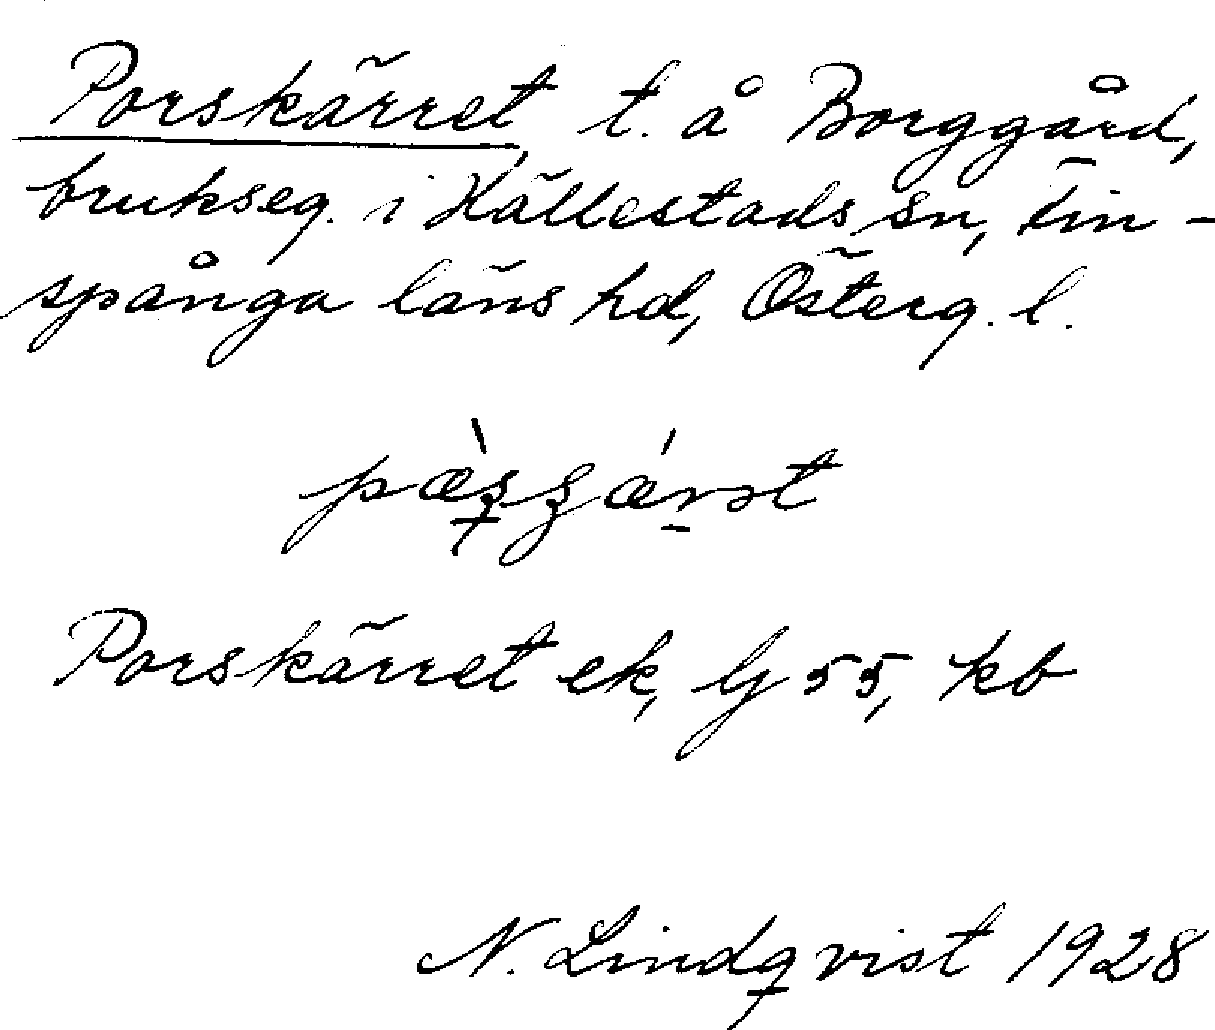 Porskärret, t. å Borggård,
brukseg. i Hällestads sn, Fin-
spånga läns hd, Österg. l.
Porskärret ek, G 55, kb
N. Lindqvist 1928